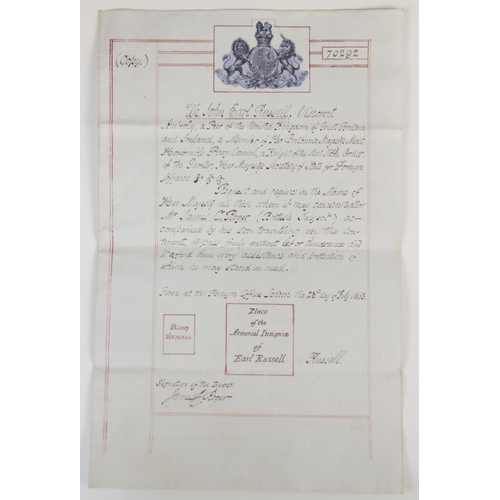 (Copy.)
70292
We John Earl Russell, Viscount
Amberley, a Peer of the United Kingdom of Great Britain
and Ireland, a Member of Her Britannic Majesty's Most
Honourable Privy Council, a Knight of the Most Noble Order
of the Garter, Her Majesty's Secretary of State for Foreign
Affairs &c &c &c
Request and require in the Name of
Her Majesty all those whom it may concern to allow
Mr. James (British Subject) ac-
companied by his Son travelling on the Con-
tinent, to pass freely without let or hindrance and
to afford them every assistance and protection of
which he may stand in need.
Given at the Foreign Office London the 28th day of July 1863
Stamp
Place
of the
Armorial Insignia
of
Earl Russell
Russell.
Signature of the Bearer
James